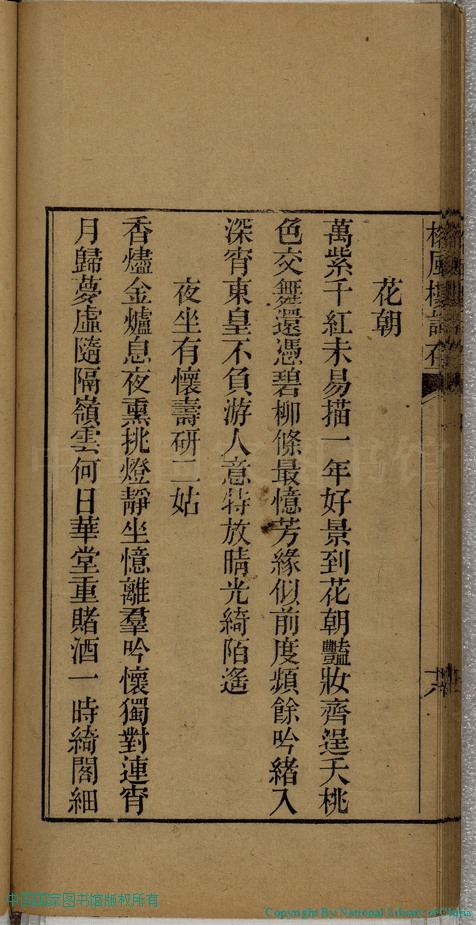 花朝
萬紫千紅未易描一年好景到花朝豔妝齊逞夭桃
色交舞還憑碧柳條最憶芳緣似前度頻餘吟緒入
深宵東皇不負游人意特放晴光綺陌遙
夜坐有懷壽研二姑
香燼金爐息夜熏挑燈靜坐憶離羣吟懷獨對連宵
月歸夢虛隨隔嶺雲何日華堂重賭酒一時綺閣細
中国国家图书馆版权所有
Copyright By National Library of China